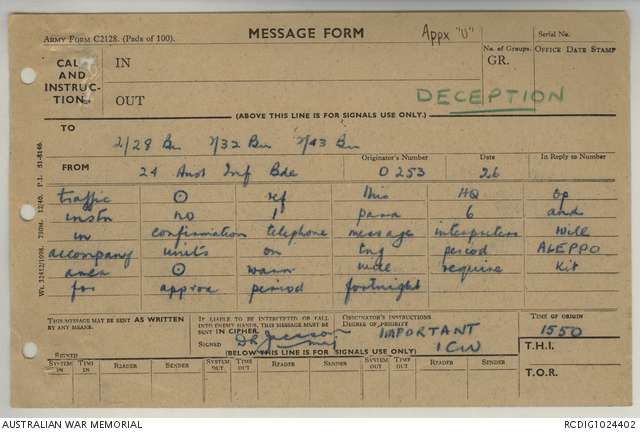 ARMY FORM C2128. (Pads of 100).
MESSAGE FORM
Appx "U"
Serial No.
CALL AND INSTRUC- TION.
IN
OUT
No. of Groups.
GR.
OFFICE DATE STAMP
DECEPTION
(ABOVE THIS LINE IS FOR SIGNALS USE ONLY.)
TO
2/28 Bn 2/32 Bn 2/43 Bn
FROM
24 Aust Inf Bde
Originator's Number
O 253
Date
26
In Reply to Number
traffic ⊙ ref this HQ Op
instn no 1 para 6 and
in confirmation telephone message interpreters will
accompany units on trg period ALEPPO
area ⊙ warn will require kit
for approx period fortnight
THIS MESSAGE MAY BE SENT AS WRITTEN
BY ANY MEANS.
SIGNED
IF LIABLE TO BE INTERCEPTED OR FALL
INTO ENEMY HANDS, THIS MESSAGE MUST BE
SENT IN CIPHER.
SIGNED
ORIGINATOR'S INSTRUCTIONS
DEGREE OF PRIORITY
IMPORTANT
TIME OF ORIGIN
1550
(BELOW THIS LINE IS FOR SIGNALS USE ONLY)
T.H.I.
T.O.R.
SYSTEM IN TIME IN READER SENDER SYSTEM OUT TIME OUT READER SENDER SYSTEM OUT TIME OUT READER SENDER
AUSTRALIAN WAR MEMORIAL
RCDIG1024402